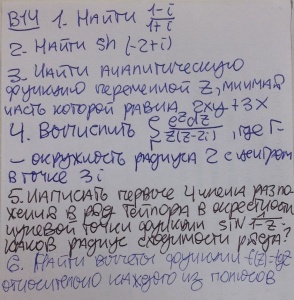 В14 1. Найти (1-i)/(1+i)
2. Найти sh(-2+i)
3. Найти аналитическую
функцию переменной z, мнимая
часть которой равна 2xy+3x
4. Вычислить ∫_Г e^z dz / z(z-2i), где Г
- окружность радиуса 2 с центром
в точке 3i
5. Написать первые 4 члена разло-
жения в ряд Тейлора в окрестности
нулевой точки функции sin 1/(1-z).
Каков радиус сходимости ряда?
6. Найти вычеты функции f(z)=tgz
относительно каждого из полюсов